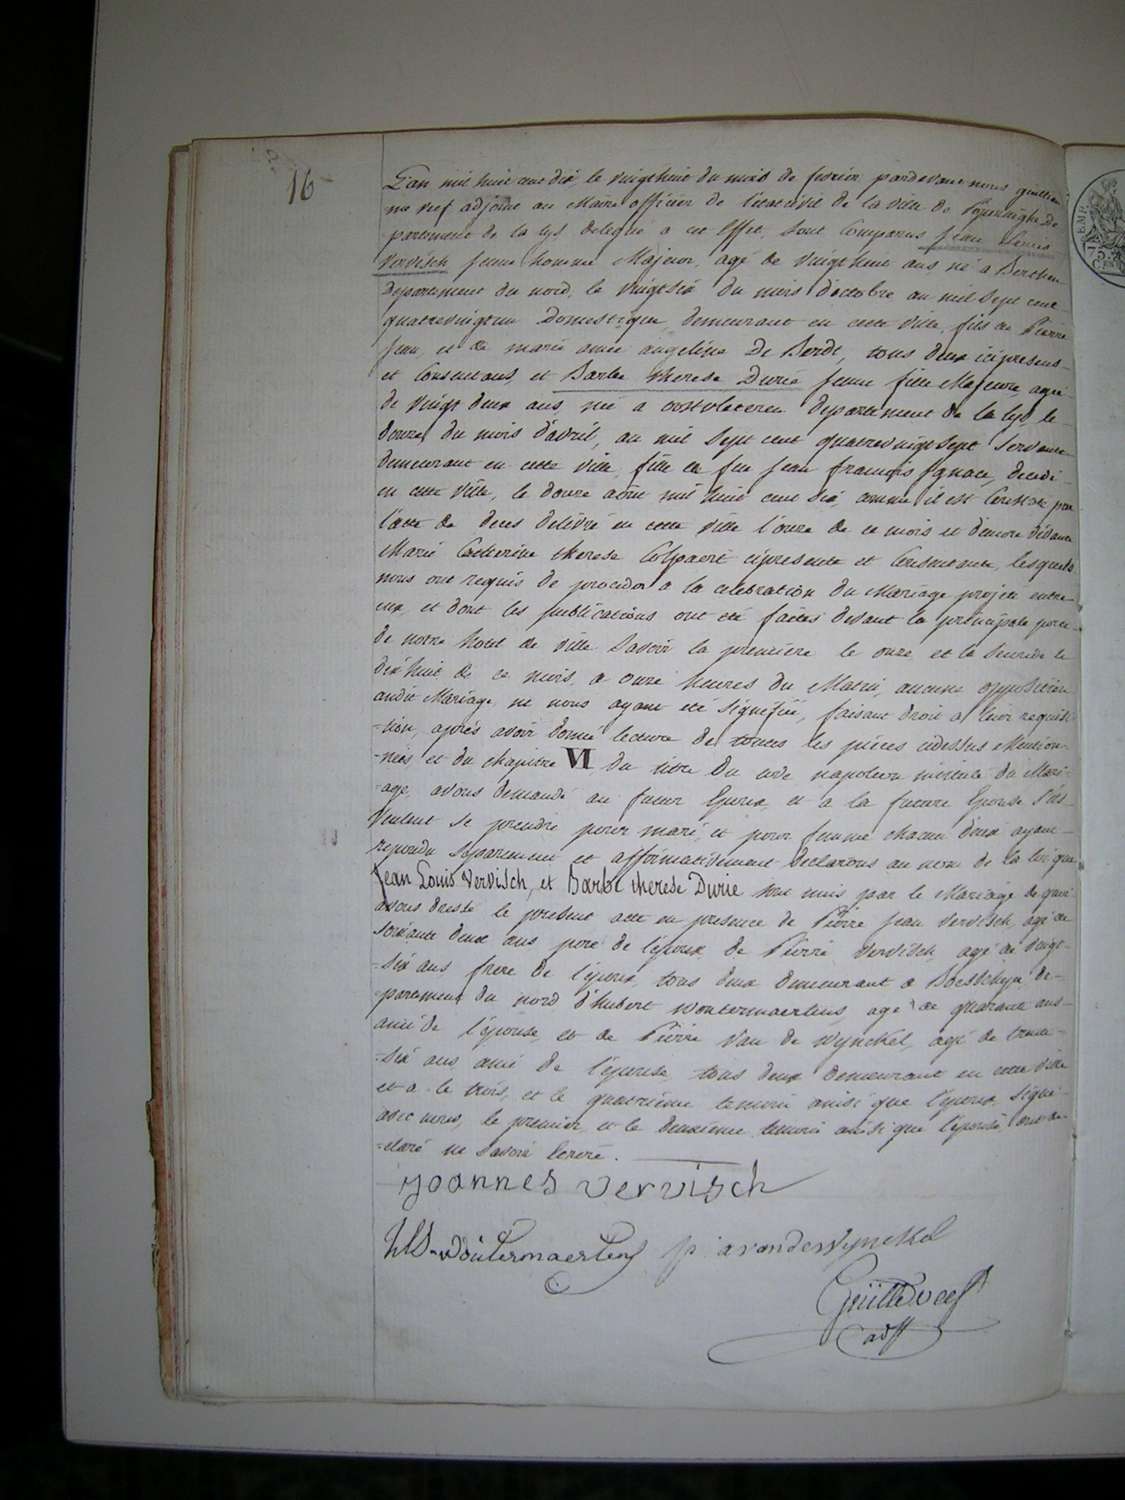 16
L'an mil huit cent dix le vingthuit du mois de fevrier pardevant nous guille
me veef adjoint au Maire officier de l'etatcivil de la ville de Poperinghe de
partement de la Lys delegué a cet effet, sont Comparus Jean Louis
Vervisch jeune homme Majeur, agé de vingthuit ans né a Berthen
Departement du nord, le vingtsix du mois d'octobre an mil sept cent
quatrevingtun Domestique, demeurant en cette ville, fils de Pierre
Jean, et de marie anne angeline De Berdt, tous deux icipresens
et Consentans, et Barbe therese Durie jeune fille Majeure, agée
de vingt deux ans, née a oostvleteren departement de la Lys, le
douze du mois d'avril, an mil sept cent quatrevingtsept servante
demeurant en cette ville, fille de feu Jean francois Ignace, decedé
en cette ville, le douze aout mil huit cent six, comme il est Constaté par
l'acte de deces delivré en cette ville l'onze de ce mois et d'encore vivante
Marie Catherine therese Colpaert cipresente et Consentante, lesquels
nous ont requis de proceder a la celebration du Mariage projeté entre
eux, et dont les publications ont été faites devant la principale porte
de notre hotel de ville Savoir la premiere le onze et la seconde le
dixhuit de ce mois, a onze heures du Matin, aucune opposition
audit Mariage, ne nous ayant été signifiée, faisant droit a leur requisi
-tion, après avoir donné lecture de toutes les pieces cidessus Mention-
-nées et du chapitre VI du titre du code napoleon intitulé du Mari-
-age, avons demandé au futur Epoux, et a la future Epouse s'ils
veulent se prendre pour mari, et pour femme chacun d'eux ayant
repondu separement et affirmativement declarons au nom de la loi que
Jean Louis Vervisch, et Barbe therese Durie sont unis par le Mariage de quoi
avons dressé le present acte en presence de Pierre Jean Vervisch, agé de
soixante deux ans pere de l'époux, de Pierre Vervisch, agé de vingt-
-six ans frere de l'époux, tous deux demeurant a Boeschepe, de-
-partement du nord, d'hubert woutermaertens, agé de quarante ans
ami de l'épouse, et de Pierre Van de Wynckel, agé de trente-
-six ans ami de l'épouse, tous deux demeurant en cette ville
et a le trois, et le quatrieme temoin ainsi que l'époux signé
avec nous, le premier, et le deuxieme temoin ainsi que l'épouse ont de
-claré ne savoir Ecrire.
joannes vervisch
woutermaertens p: a vandewynckel
Guille Veef
adjt